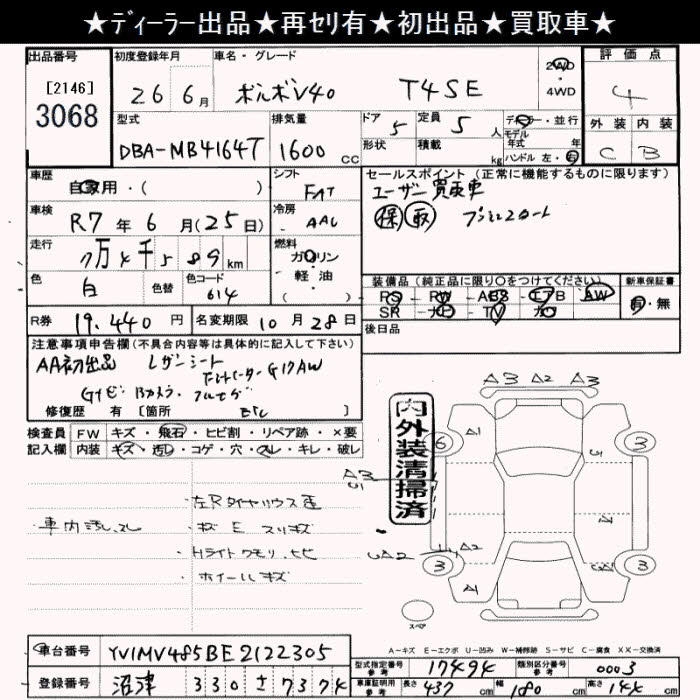 ★ディーラー出品★再セリ有★初出品★買取車★
出品番号 初度登録年月 車名・グレード 評価点
[2146]
3068
26 6月 ボルボV40 T4SE
2WD・4WD
4
型式 排気量 ドア 定員 ディーラー・並行 外装 内装
DBA-MB4164T 1600cc 5 5人 モデル年式 年 C B
形状 積載 kg ハンドル 左・右
車歴 シフト セールスポイント(正常に機能するものに限ります)
自家用・( ) FAT ユーザー買取車
車検 冷房 保 取
R7年6月(25日) AAC
走行 燃料
7万4千589km ガソリン・軽油・( )
色 色替 色コード
白 614
装備品(純正品に限り○をつけてください) 新車保証書
PS・PW・ABS・エアB AW 有・無
SR・ナビ・TV
R券 19,440円 名変期限 10月28日 後日品
注意事項申告欄(不具合内容等は具体的に記入して下さい)
AA初出品 レザーシート
シートヒーター G17AW
Gナビ・Bカメラ・フルセグ
修復歴 有 [箇所 ETC ]
検査員 FW キズ・飛石・ヒビ割・リペア跡・×要
記入欄 内装 キズ・汚レ・コゲ・穴・スレ・キレ・破レ
車内汚レ、スレ
キズ E スリキズ
Hライトクモリ、ヒビ
ホイールキズ
内外装清掃済
A3 A2 A3
A1
6 3
A2
3 3
スペア
A-キズ E-エクボ U-凹み W-補修跡 S-サビ C-腐食 XX-交換済
車台番号 YV1MV485BE2122305
型式指定番号 参考 17494 類別区分番号 参考 0003
登録番号 沼津 330 さ 7374
車庫証明用 参考 長さ 437cm 幅 180cm 高さ 144cm